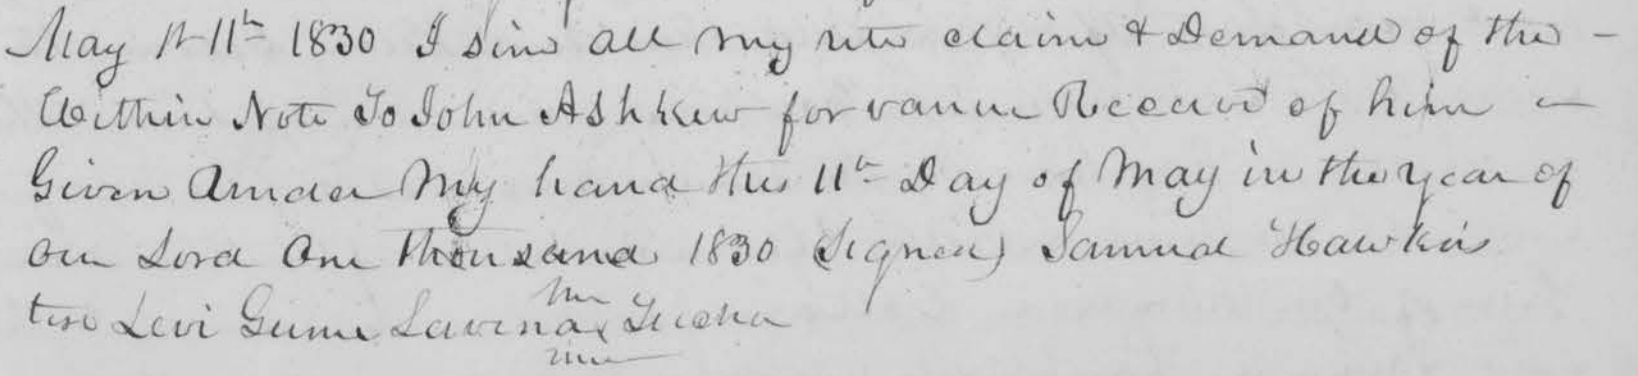 May 11th 1830 I sine all my rite claim & Demand of the -
Within Note To John Ashkew for vanue Receivd of him -
Given Under My hand this 11th Day of May in the year of
our Lord One thousand 1830 (Signed) Samuel Hawkins
test Levi Lavina x
her